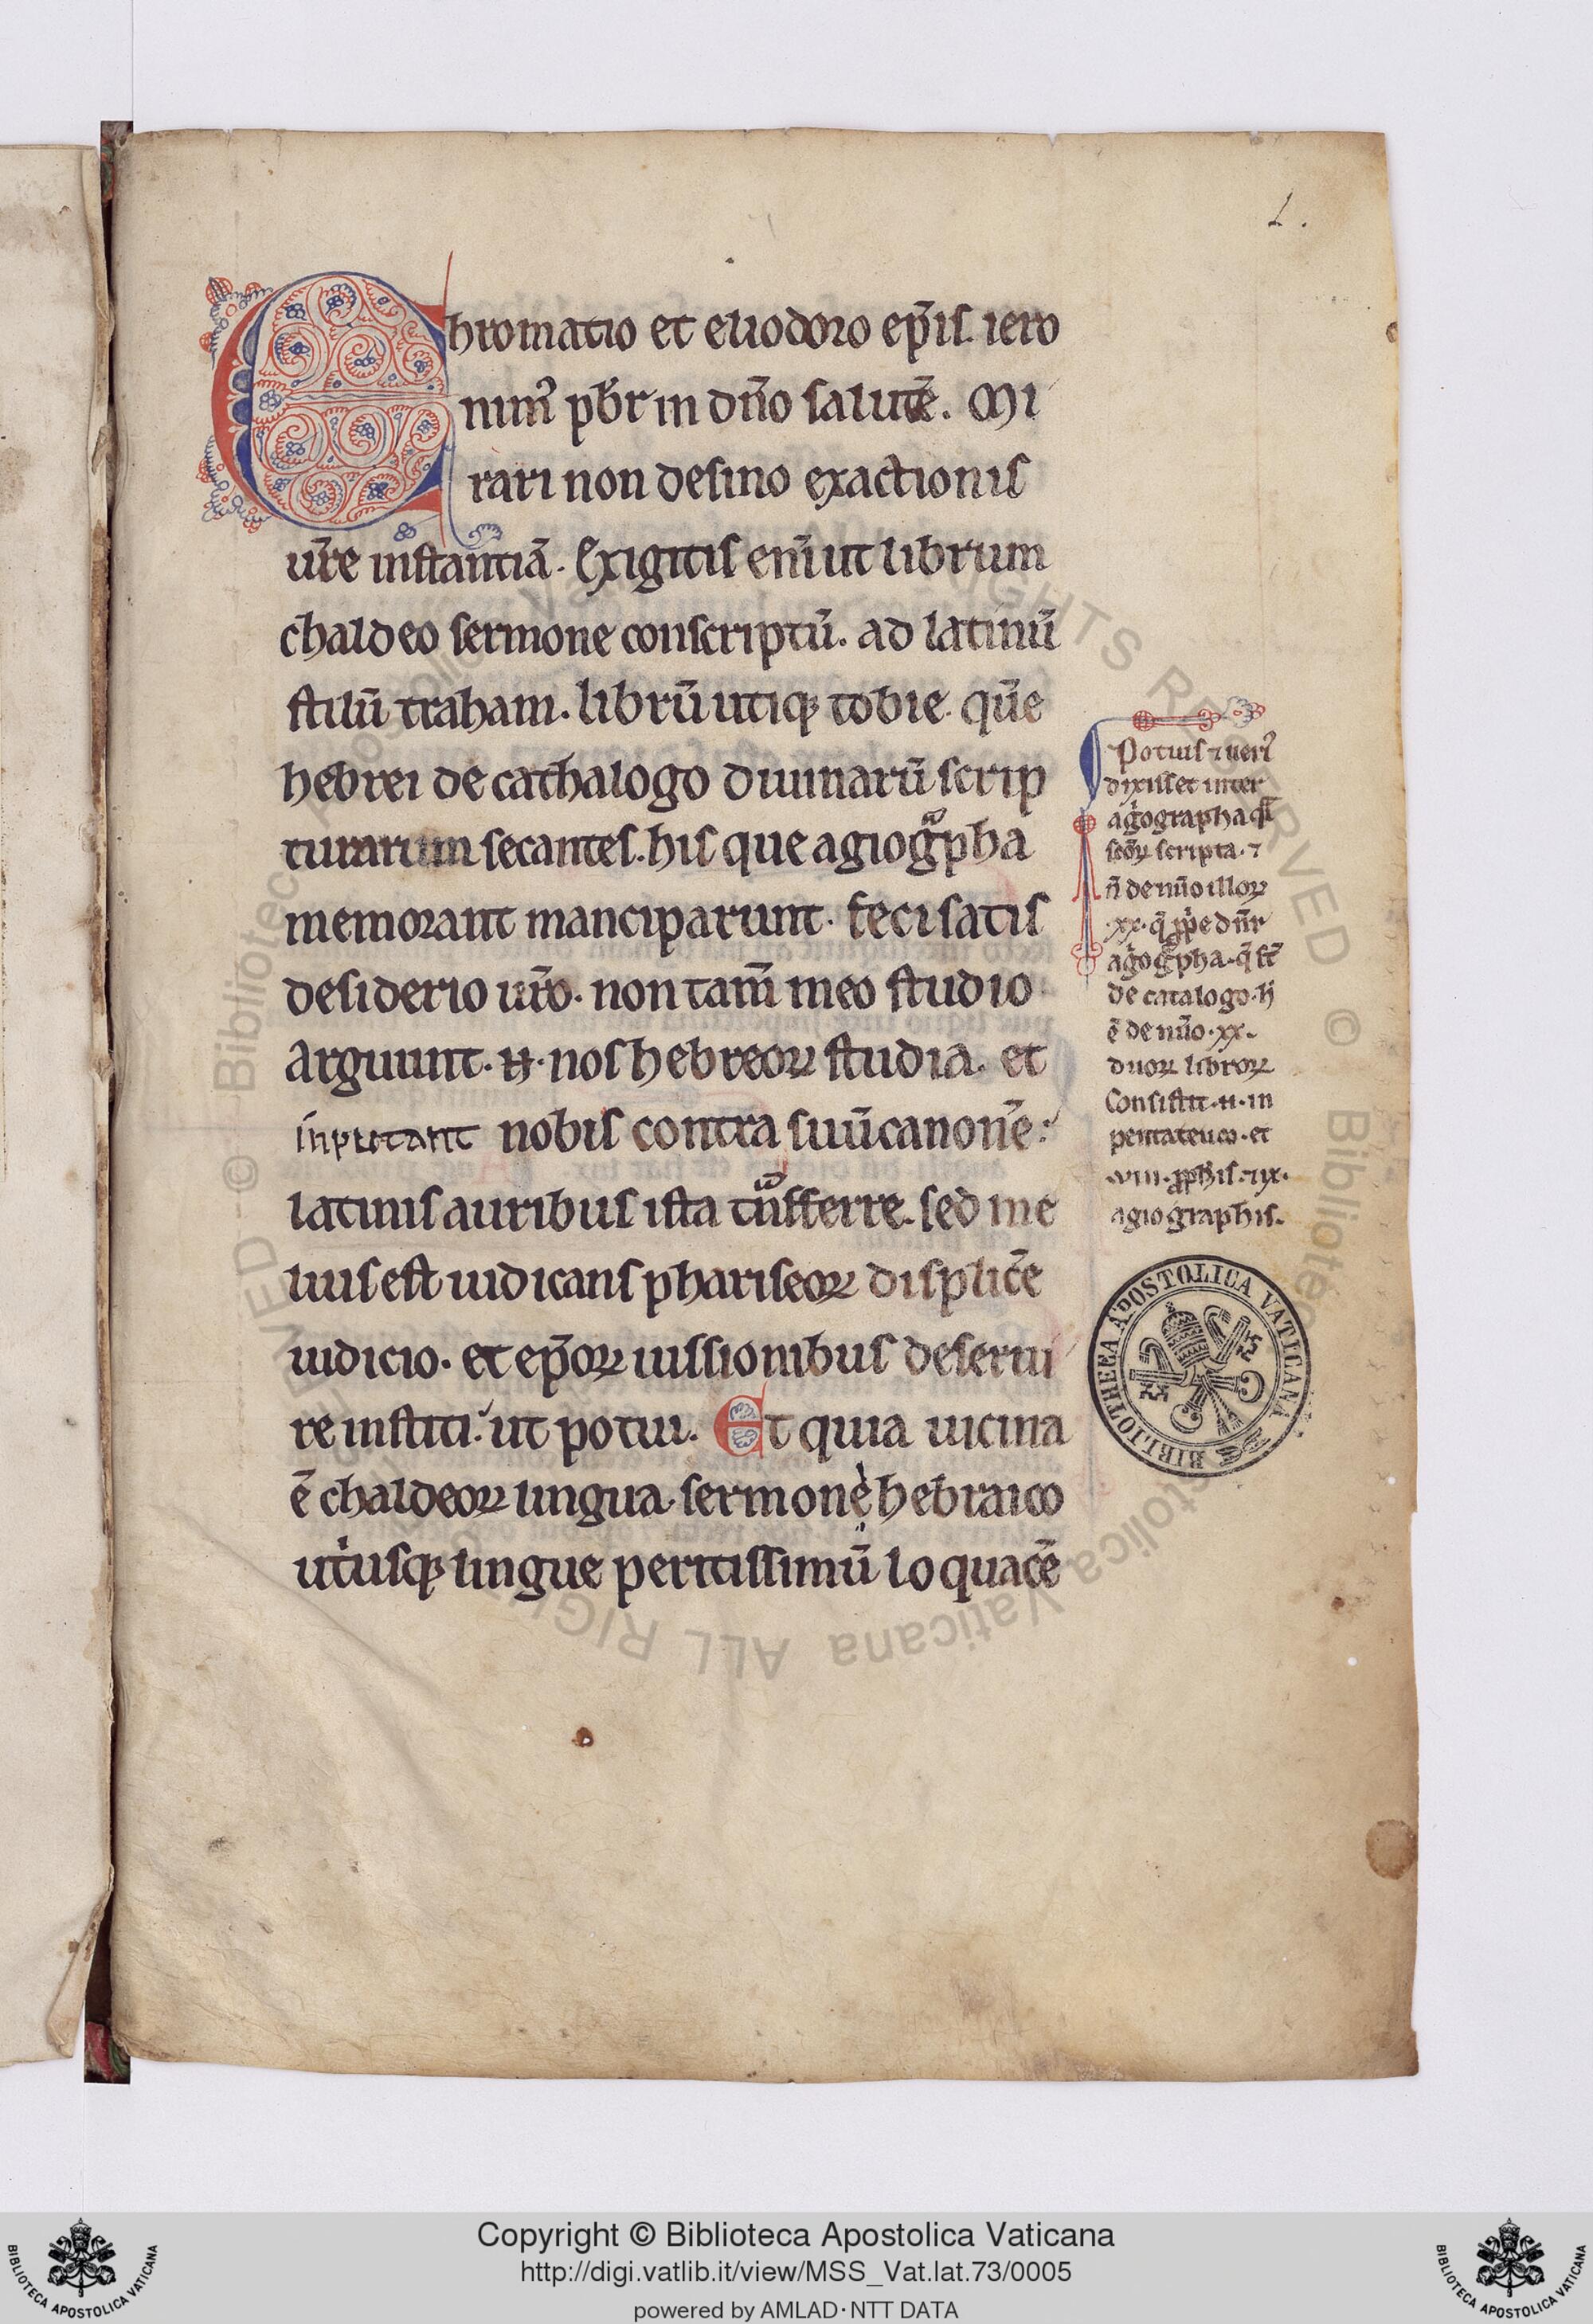 1.
Chromatio et eliodoro ep̄is. iero
nim᷒ pb̄r in dn̄o salutē. Mi
rari non desino exactionis
ur̄e instantiā. Exigitis eni᷒ ut librum
chaldeo sermone conscriptū. ad latinū
stilū traham. librū utiqꝫ tobie. quē
hebrei de cathalogo diuinarū scrip
turarum secantes. his que agiogͣpha
memorant manciparunt. feci satis
desiderio ur̄o. non tam̄ meo studio
Arguunt .n̄. nos hebreoꝝ studia. et
inputant nobis contra suū canonē
latinis auribus ista tͣnsferre. sed me
lius est iudicans phariseoꝝ displicē̄e
iudicio. et ep̄oꝝ iussionibus deserui
re institi ut potui. Et quia uicina
ē chaldeoꝝ lingua sermone hebraico
ut͛usqꝫ lingue peritissimū loquacē
Potuis ⁊ ueri᷒
dixisset inter
agographa
scripta. ⁊
n̄ de nūo illoꝝ
.xx.
de catalogo.
ē de nūo .xx.
duoꝝ libroꝝ
Consistit .n̄. in
pentateuco. et
.viii. ꝓph̄is. ⁊ ix.
agiographis.
BIBLIOTHECA APOSTOLICA VATICANA
© Biblioteca Apostolica Vaticana ALL RIGHTS RESERVED
Copyright © Biblioteca Apostolica Vaticana
http://digi.vatlib.it/view/MSS_Vat.lat.73/0005
powered by AMLAD·NTT DATA
BIBLIOTECA APOSTOLICA VATICANA
BIBLIOTECA APOSTOLICA VATICANA